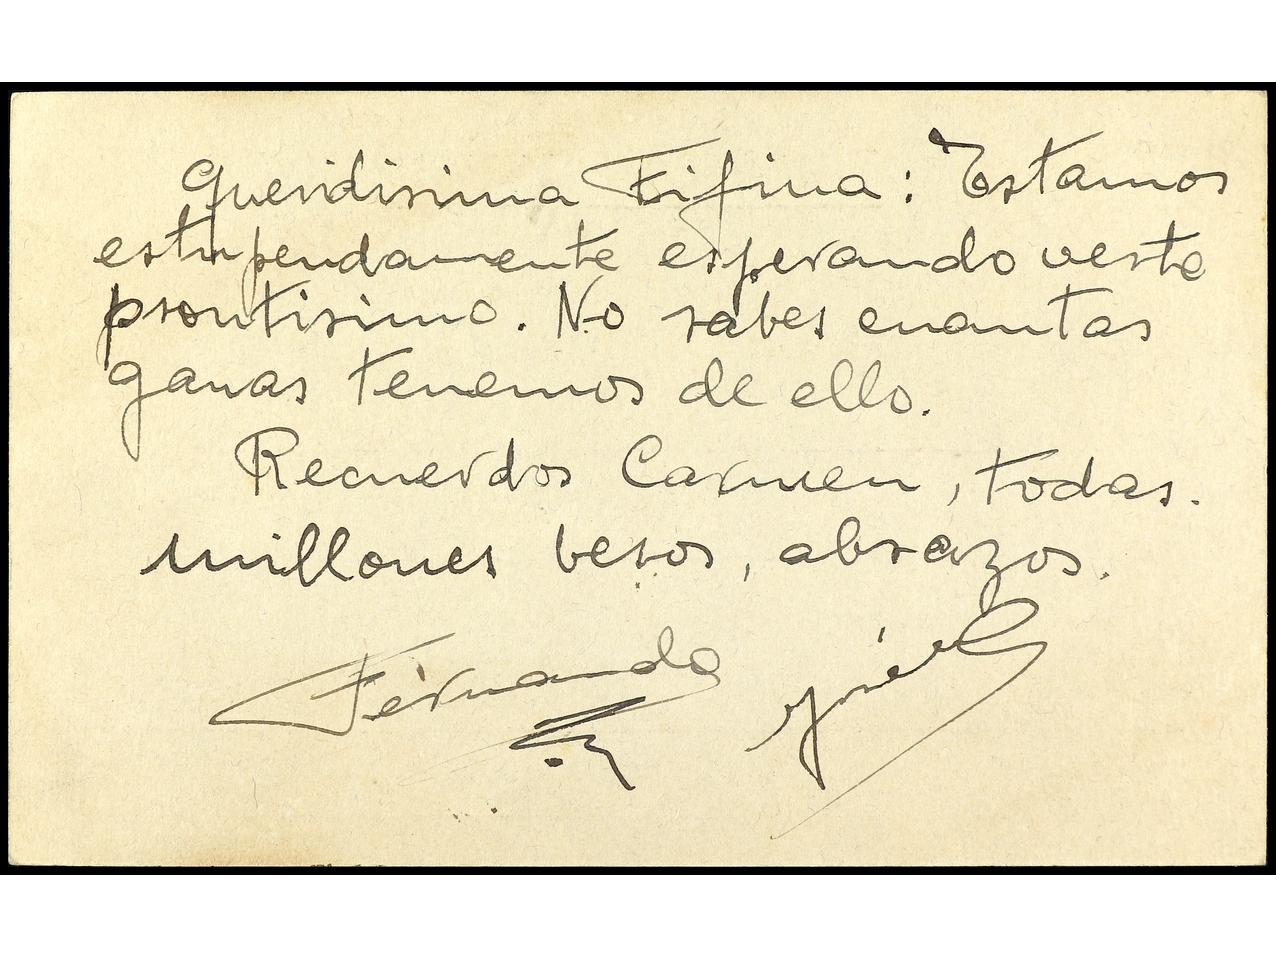 Queridisima Fifina: Estamos
estupendamente esperando verte
prontisimo. No sabes cuantas
ganas tenemos de ello.
Recuerdos Carmen, todas.
millones besos, abrazos.
Fernando José